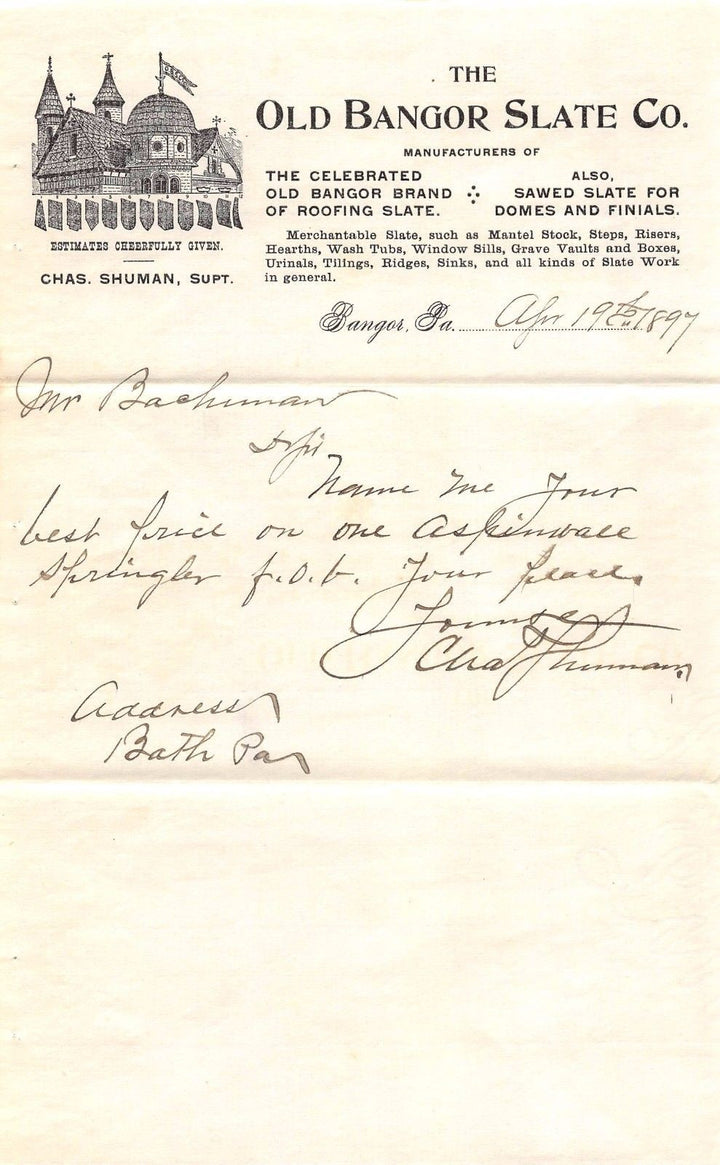 THE
OLD BANGOR SLATE CO.
MANUFACTURERS OF
THE CELEBRATED
OLD BANGOR BRAND
OF ROOFING SLATE.
ALSO,
SAWED SLATE FOR
DOMES AND FINIALS.
Merchantable Slate, such as Mantel Stock, Steps, Risers,
Hearths, Wash Tubs, Window Sills, Grave Vaults and Boxes,
Urinals, Tilings, Ridges, Sinks, and all kinds of Slate Work
in general.
ESTIMATES CHEERFULLY GIVEN.
CHAS. SHUMAN, SUPT.
Bangor, Pa. Apr 19th 1897
Mr Bachman
D Sir
Name me your
best price on one Aspinwall
Springler f.o.b. your place
Yours
Chas Shuman
Address
Bath Pa